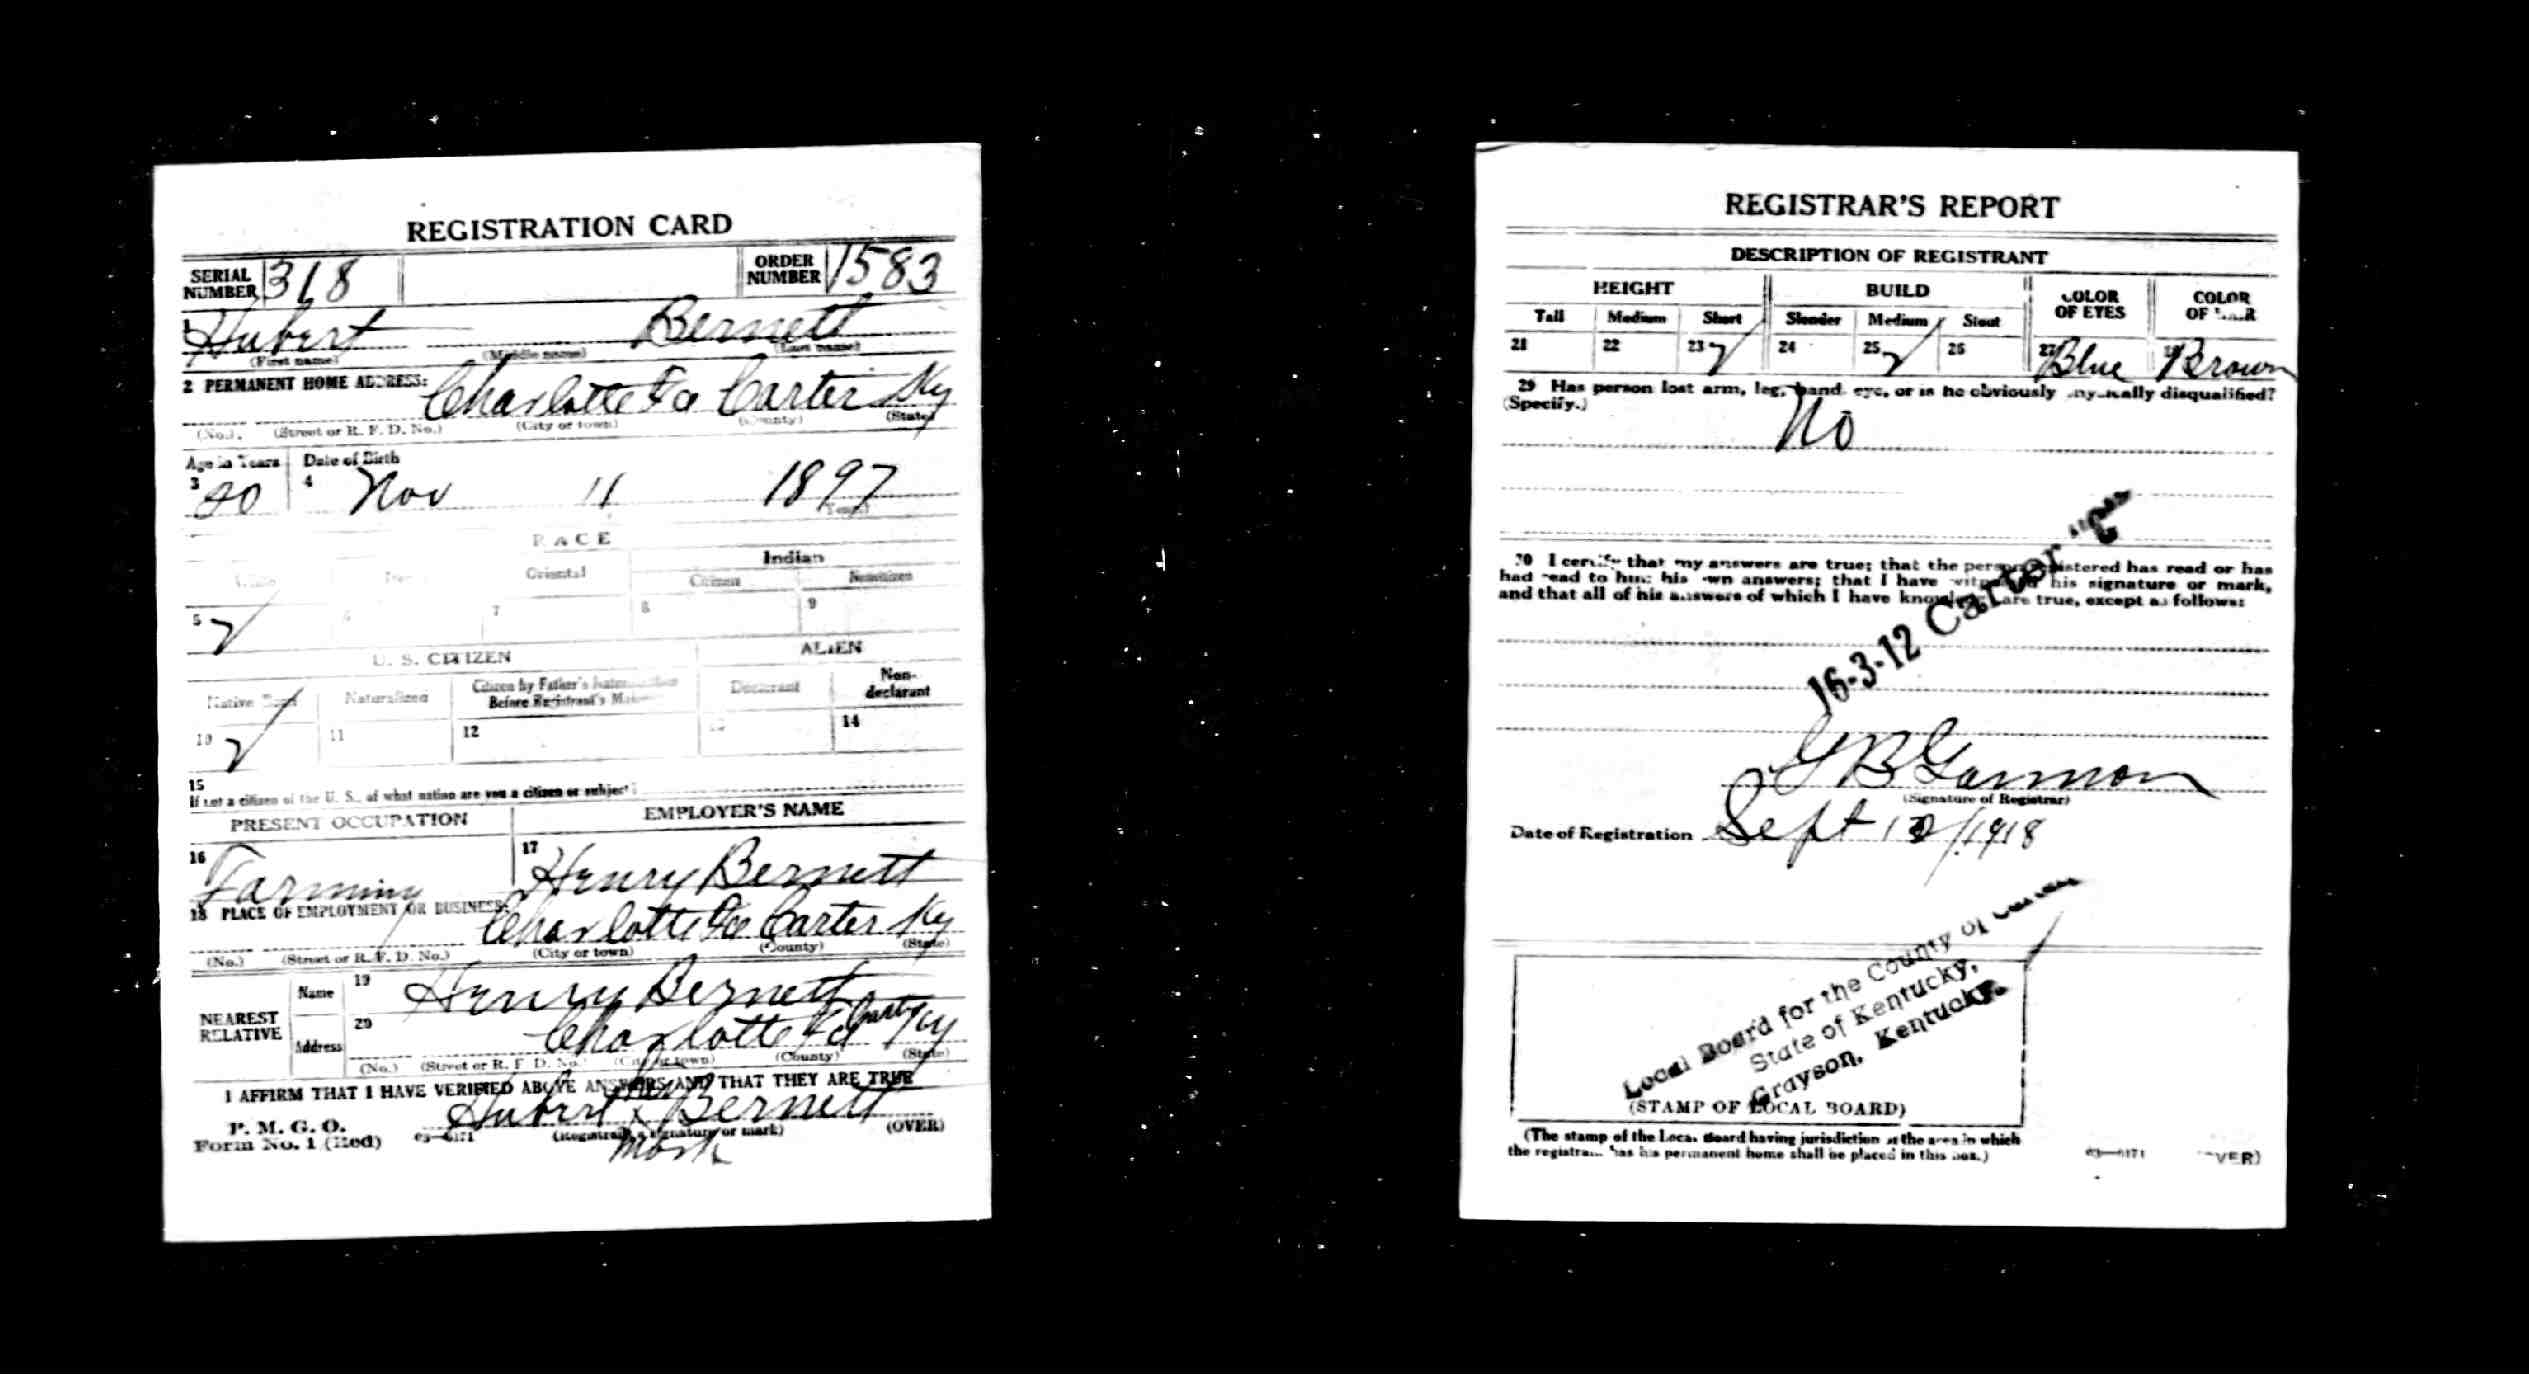 REGISTRATION CARD
SERIAL NUMBER 318 ORDER NUMBER 1583
1 Hubert Bernett
(First name) (Middle name) (Last name)
2 PERMANENT HOME ADDRESS:
Charlotte Fce Carter Ky
(No.) (Street or R. F. D. No.) (City or town) (County) (State)
Age in Years Date of Birth
3 20 4 Nov 11 1897
(Year)
RACE
White Oriental Indian
Citizen Noncitizen
5 ✓ 6 7 8 9
U. S. CITIZEN ALIEN
Native Born Naturalized Citizen by Father's Before Registrant's Declarant Non-declarant
10 ✓ 11 12 13 14
15
If not a citizen of the U. S., of what nation are you a citizen or subject?
PRESENT OCCUPATION EMPLOYER'S NAME
16 Farming 17 Henry Bernett
18 PLACE OF EMPLOYMENT OR BUSINESS:
Charlotte Fce Carter Ky
(No.) (Street or R. F. D. No.) (City or town) (County) (State)
NEAREST RELATIVE
Name 19 Henry Bernett
Address 20 Charlotte Carter Ky
(No.) (Street or R. F. D. No.) (City or town) (County) (State)
I AFFIRM THAT I HAVE VERIFIED ABOVE ANSWERS AND THAT THEY ARE TRUE
P. M. G. O.
Form No. 1 (Red) 03—6171 Hubert x Bernett
(Registrant's signature or mark) (OVER)
mark
REGISTRAR'S REPORT
DESCRIPTION OF REGISTRANT
HEIGHT BUILD COLOR OF EYES COLOR OF HAIR
Tall Medium Short Slender Medium Stout
21 22 23 ✓ 24 25 ✓ 26 27 Blue 28 Brown
29 Has person lost arm, leg, hand, eye, or is he obviously physically disqualified?
(Specify.) No
30 I certify that my answers are true; that the person registered has read or has
had read to him his own answers; that I have witnessed his signature or mark,
and that all of his answers of which I have knowledge are true, except as follows:
16-3-12 Carter "C"
G B Garmon
(Signature of Registrar)
Date of Registration Sept 12/1918
Local Board for the County of Carter
State of Kentucky,
Grayson, Kentucky.
(STAMP OF LOCAL BOARD)
(The stamp of the Local Board having jurisdiction of the area in which
the registrant has his permanent home shall be placed in this box.)
03—6171 (OVER)